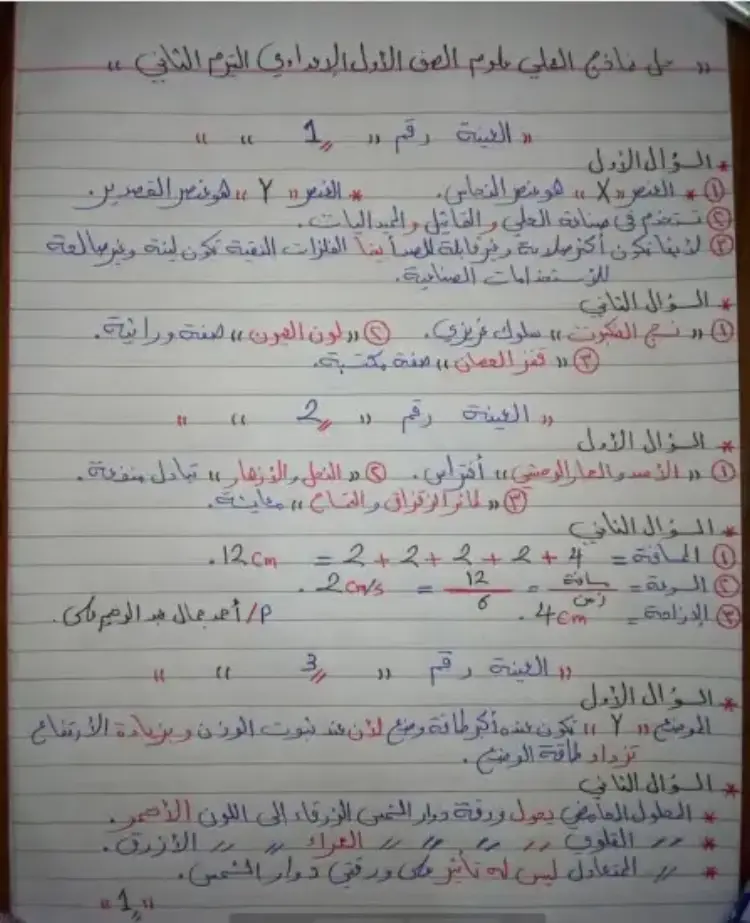 " حل نماذج العملي علوم الصف الأول الإعدادي الترم الثاني "
" العينة رقم " 1 " "
* السؤال الأول
① * العنصر " X " هو عنصر النحاس. * العنصر " Y " هو عنصر القصدير.
② تستخدم في صناعة الحلي والتماثيل والميداليات.
③ لأنها تكون أكثر صلابة وغير قابلة للصدأ بينما الفلزات النقية تكون لينة وغير صالحة
للاستخدامات الصناعية.
* السؤال الثاني
① " نسج العنكبوت " سلوك غريزي. ② " لون العيون " صفة وراثية.
③ " قفز الحصان " صفة مكتسبة.
" العينة رقم " 2 " "
* السؤال الأول
① " الأسد والحمار الوحشي " أفتراس. ② " النحل والأزهار " تبادل منفعة.
③ " طائر الزقزاق والتمساح " معايشة.
* السؤال الثاني
① المسافة = 4 + 2 + 2 + 2 + 2 = 12 cm.
② السرعة = مسافة / زمن = 12 / 6 = 2 cm/s.
③ الإزاحة = 4 cm. P/ أحمد جمال عبد الرحيم مكي.
" العينة رقم " 3 " "
* السؤال الأول
الموضع " Y " تكون عنده أكبر طاقة وضع لأن عند ثبوت الوزن وبزيادة الأرتفاع
تزداد طاقة الوضع.
* السؤال الثاني
* المحلول الحامضي يحول ورقة دوار الشمس الزرقاء إلى اللون الأحمر.
* 〃 القلوي 〃 〃 〃 〃 الحمراء 〃 〃 الأزرق.
* 〃 المتعادل ليس له تأثير على ورقتي دوار الشمس.
" 1 "